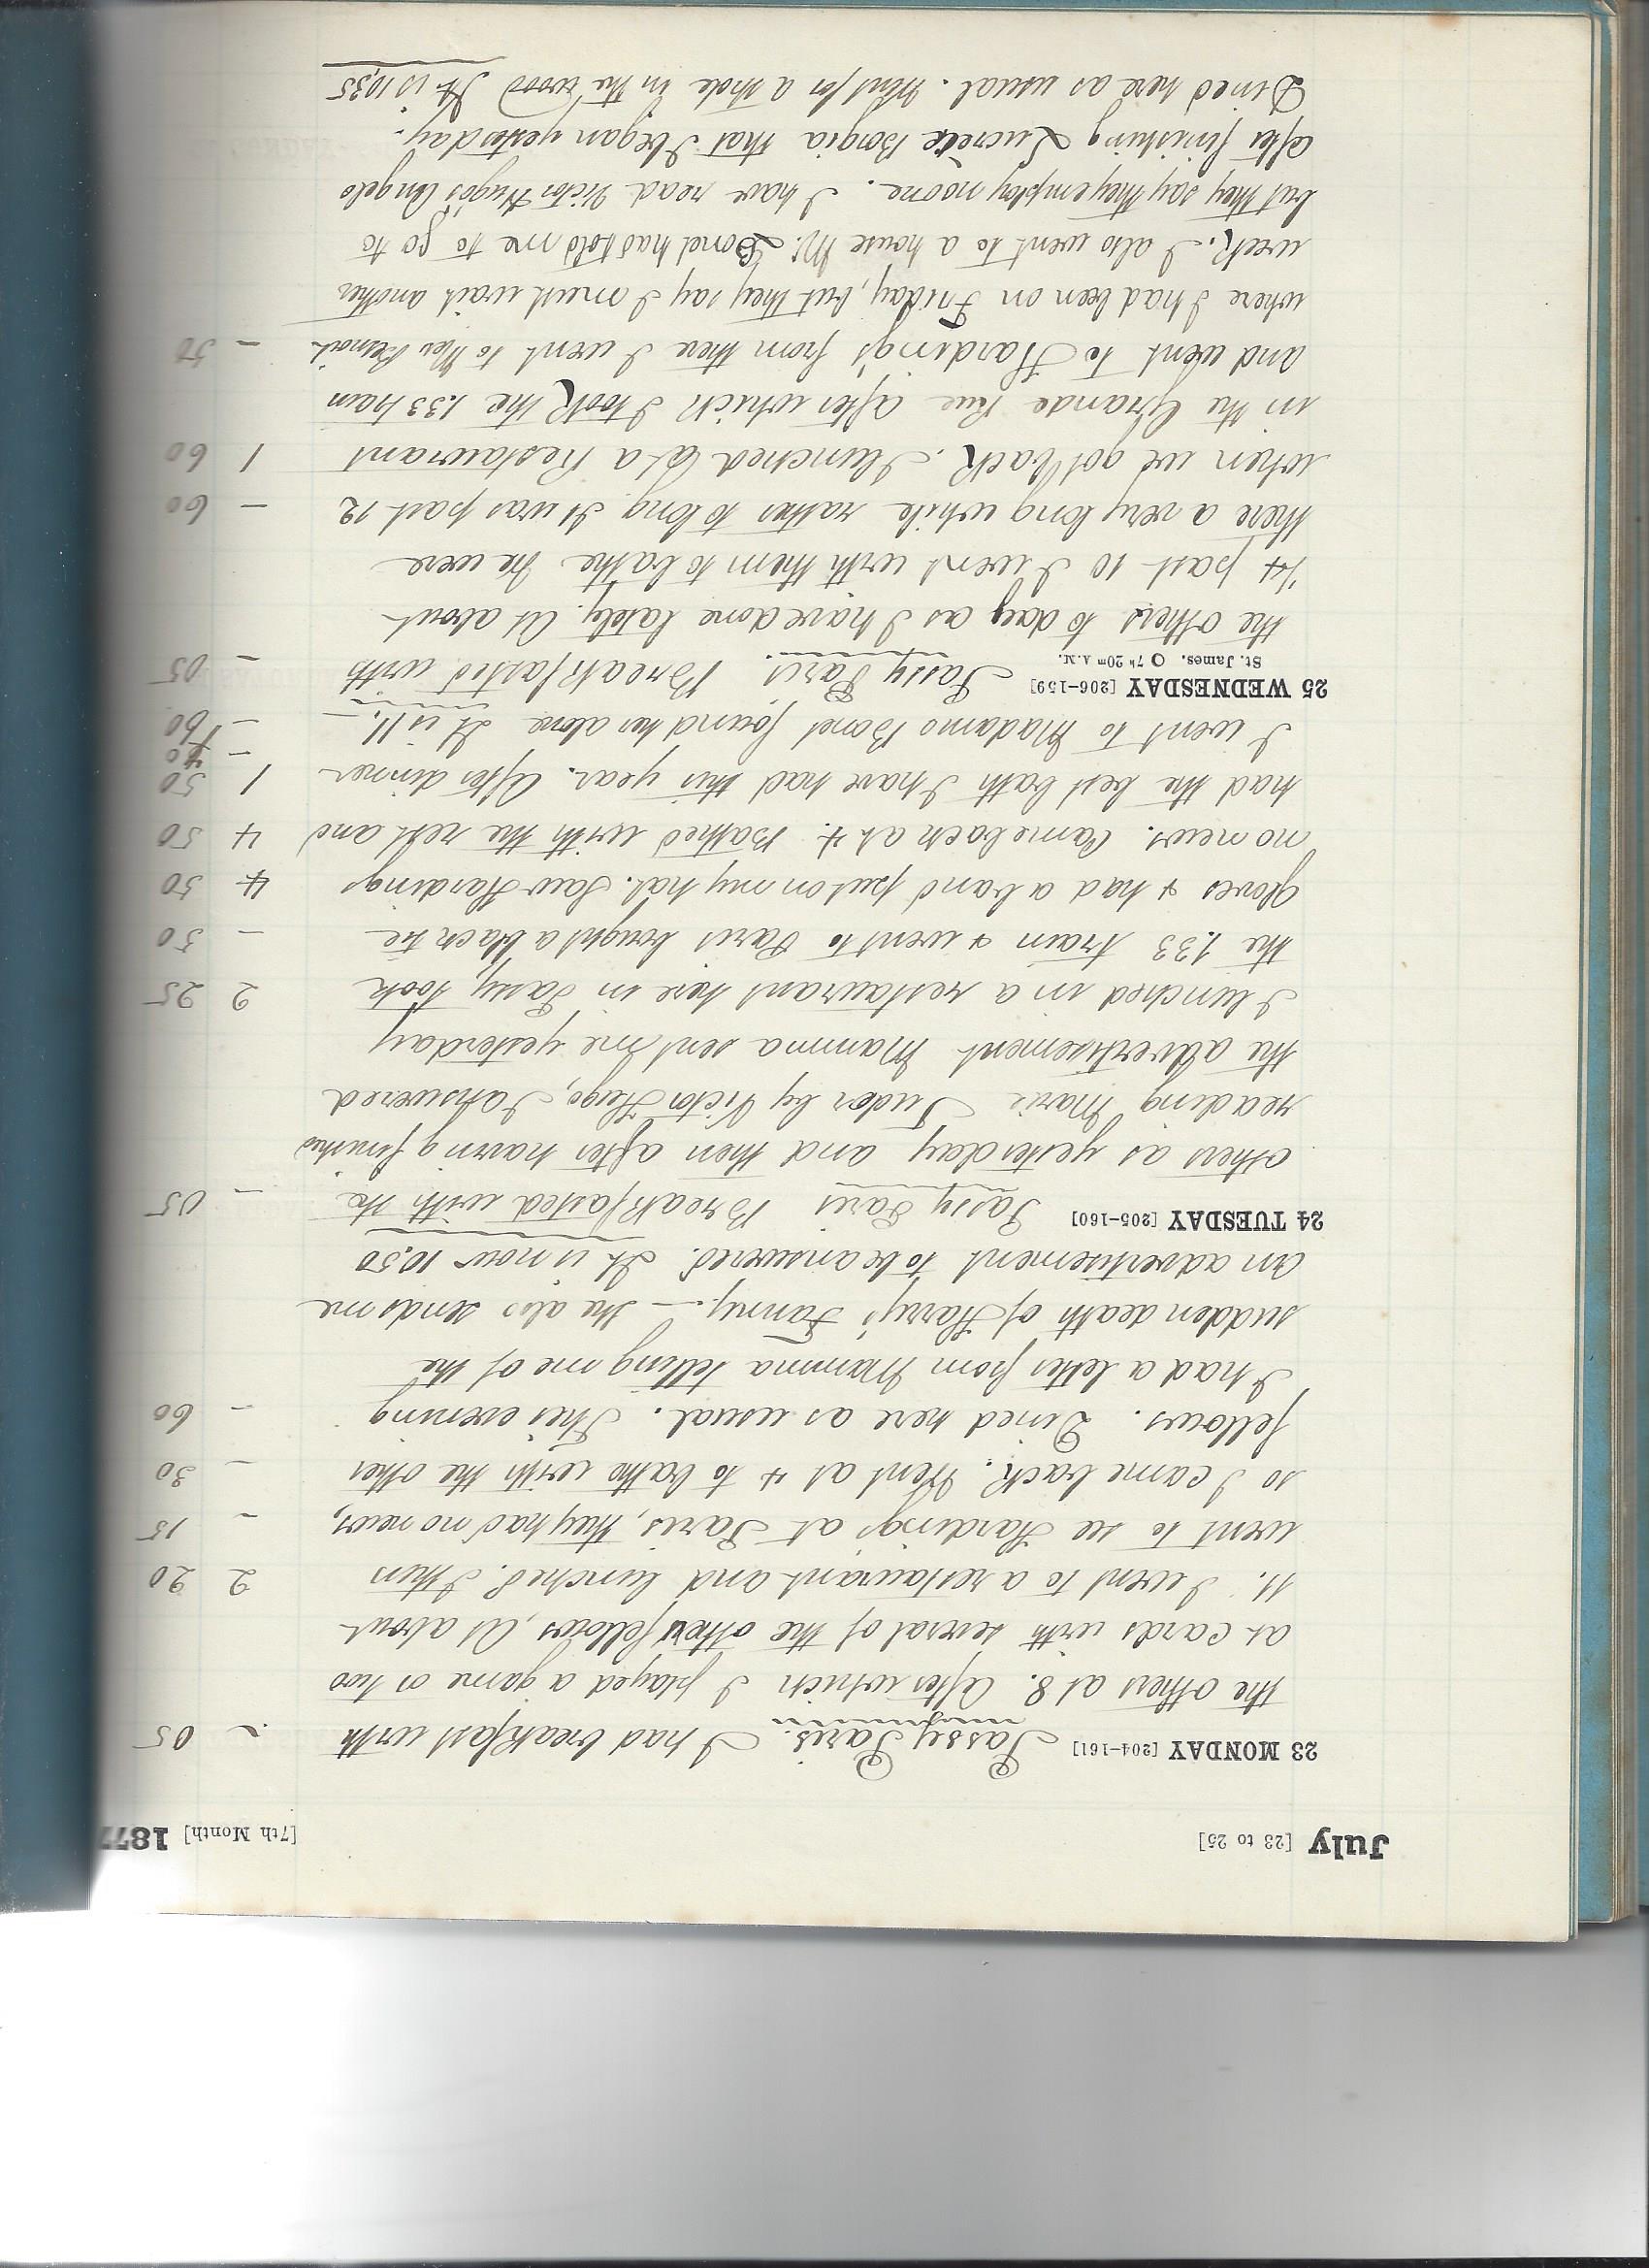 July [23 to 25] [7th Month] 187
23 MONDAY [204–161] Passy Paris. I had breakfast with - 05
the others at 8. After which I played a game or two
at cards with several of the other fellows. At about
11. I went to a restaurant and lunched. I then 2 20
went to see Harding's at Paris, they had no news, - 15
so I came back. Went at 4 to bathe with the other - 30
fellows. Dined here as usual. This evening - 60
I had a letter from Mamma telling me of the
sudden death of Harry's Fanny. — She also sends me
an advertisement to be answered. It is now 10.50
24 TUESDAY [205–160] Passy Paris Breakfasted with the - 05
others as yesterday and then after having finished
reading Marie Tudor by Victor Hugo, I answered
the advertisement Mamma sent me yesterday
I lunched in a restaurant here in Passy, took 2 25
the 1.33 train & went to Paris bought a black tie - 50
gloves & had a band put on my hat. Saw Hardings 4 50
no news. Came back at 4. Bathed with the rest and 4 50
had the best bath I have had this year. After dinner 1 50
I went to Madame Bond found her alone It is 11. — - 60
25 WEDNESDAY [206–159] Passy Paris. Breakfasted with - 05
St. James. 7h 20m A.M.
the others to day as I have done lately. At about
1/4 past 10 I went with them to bathe We were
there a very long while rather to long It was past 12 - 60
when we got back. I lunched at a Restaurant 1 60
in the Grande Rue after which I took the 1.33 train
and went to Harding's from there I went to - 50
where I had been on Friday, but they say I must wait another
week. I also went to a house Mr. Bond had told me to go to
but they say they employ no one. I have read Victor Hugo's Angelo
after finishing Lucrèce Borgia that I began yesterday.
Dined here as usual. Went for a stroll in the wood It is 10.35